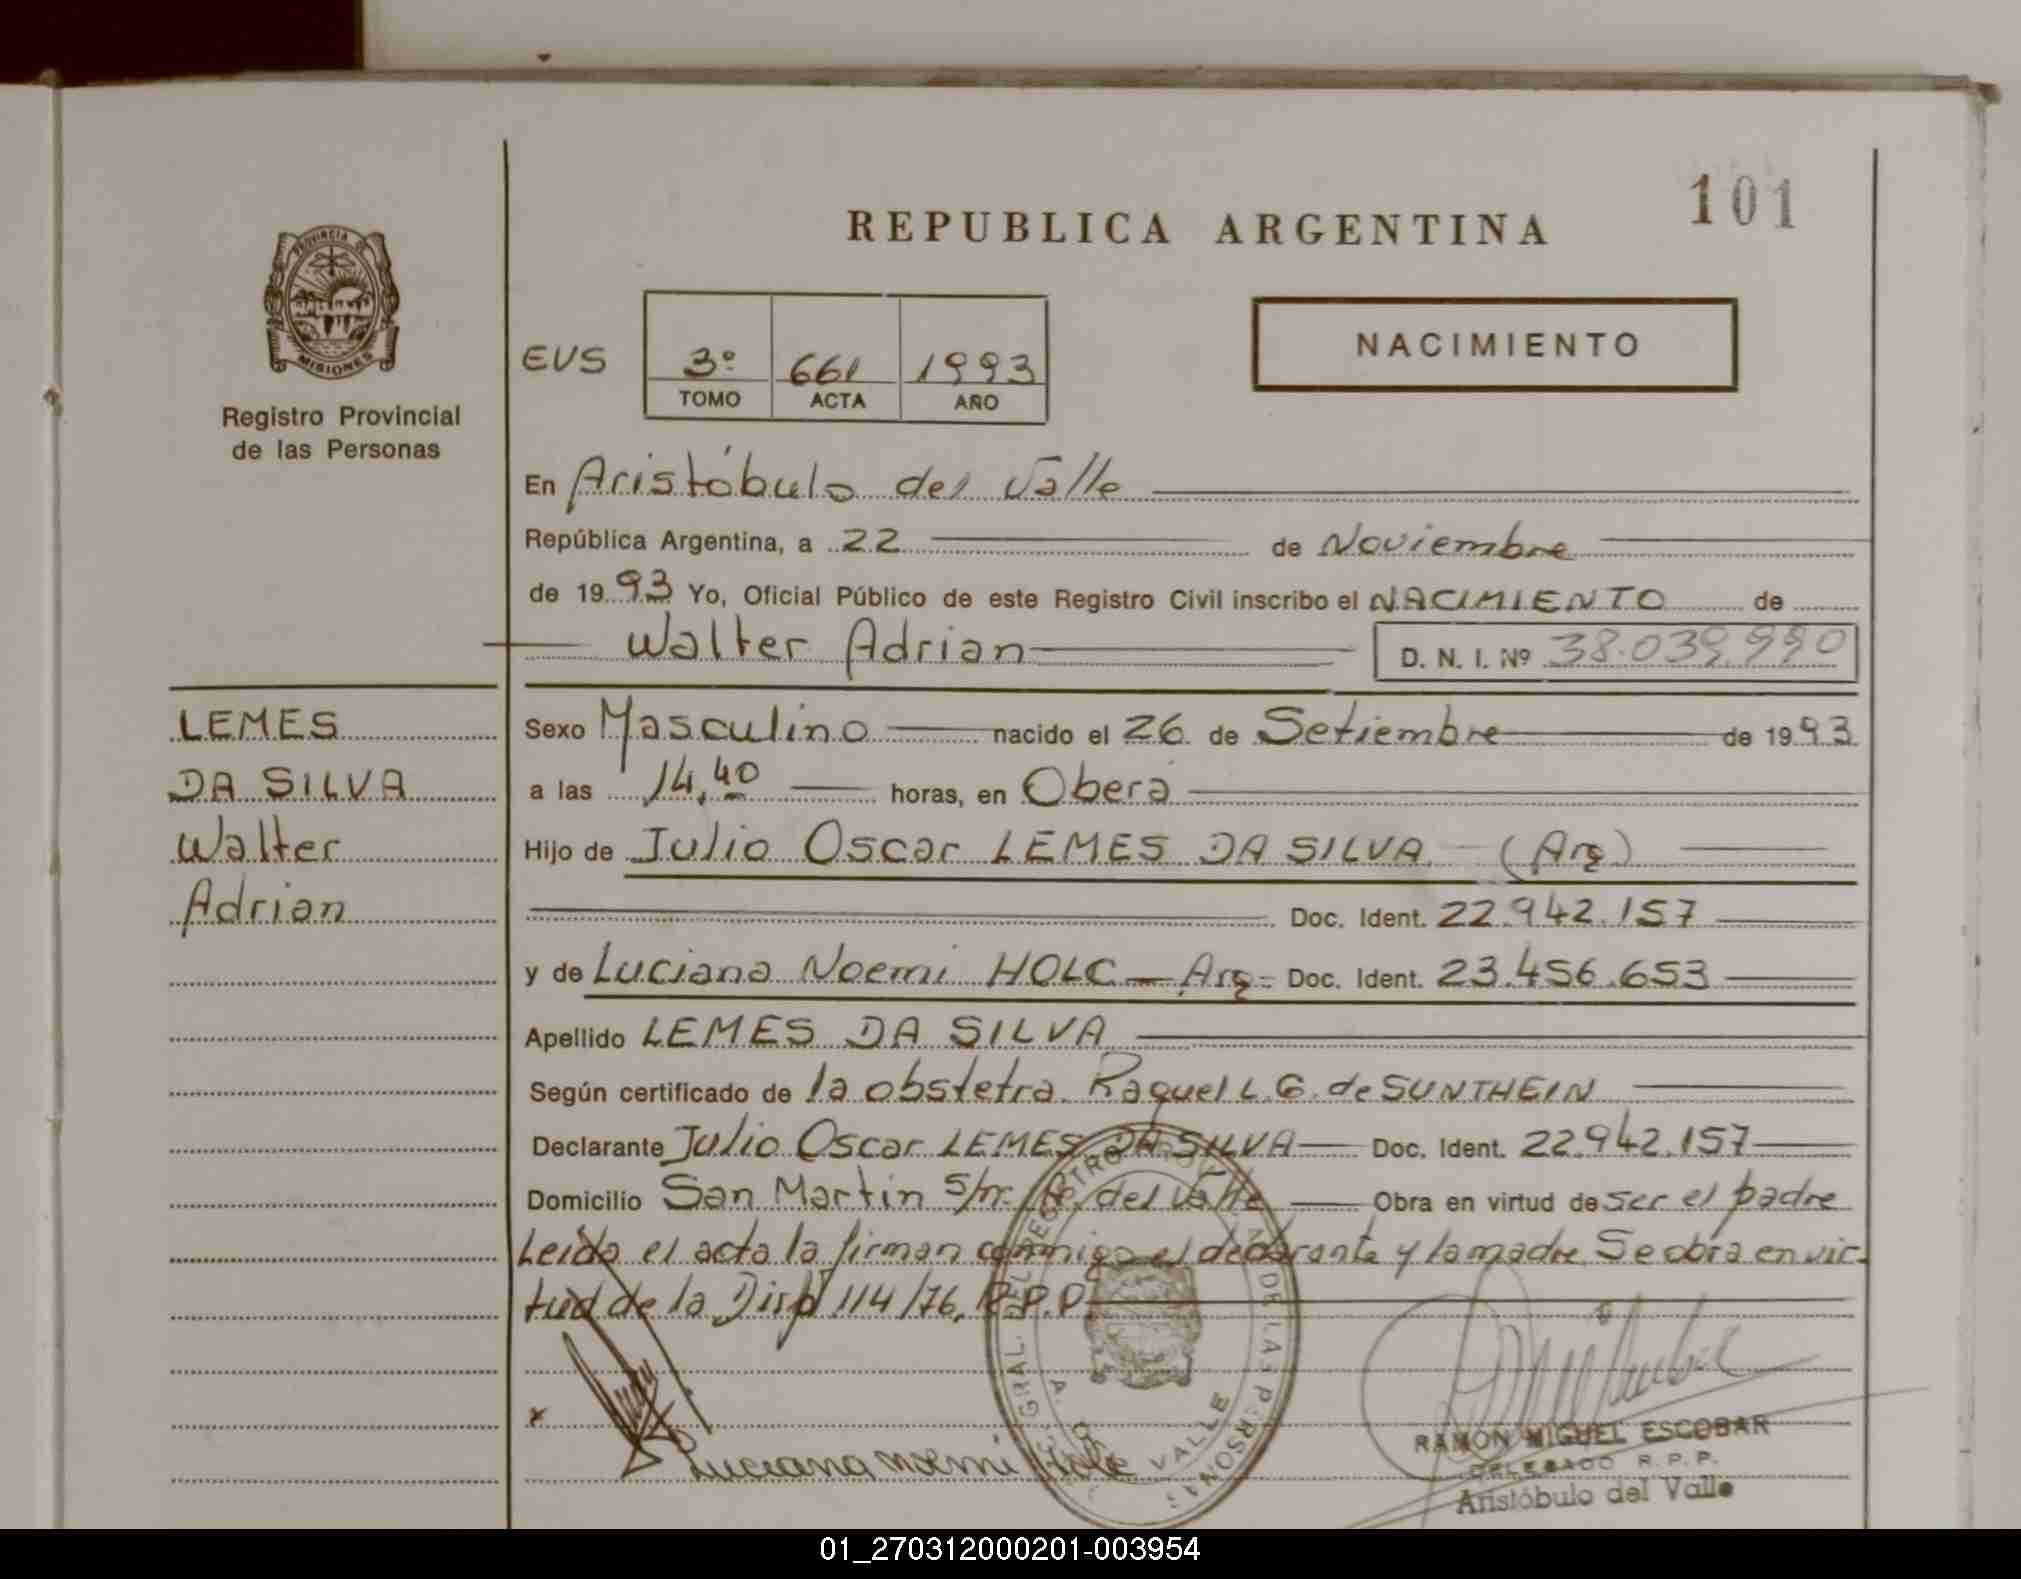 101
REPUBLICA ARGENTINA
PROVINCIA DE
MISIONES
Registro Provincial
de las Personas
EVS
3º 661 1993
TOMO ACTA AÑO
NACIMIENTO
En Aristóbulo del Valle
República Argentina, a 22 de Noviembre
de 1993 Yo, Oficial Público de este Registro Civil inscribo el NACIMIENTO de
Walter Adrian D. N. I. Nº 38.039.990
LEMES
DA SILVA
Walter
Adrian
Sexo Masculino nacido el 26 de Setiembre de 1993
a las 14,40 horas, en Oberá
Hijo de Julio Oscar LEMES DA SILVA (Arg)
Doc. Ident. 22.942.157
y de Luciana Noemi HOLC - Arg - Doc. Ident. 23.456.653
Apellido LEMES DA SILVA
Según certificado de la obstetra Raquel L. G. de SUNTHEIN
Declarante Julio Oscar LEMES DA SILVA Doc. Ident. 22.942.157
Domicilio San Martin s/nr. del Valle Obra en virtud de ser el padre
Leida el acta la firman conmigo el declarante y la madre Se obra en vir-
tud de la Disp 114/76, R.P.P.
Luciana noemi Holc
REGISTRO PROVINCIAL DE LAS PERSONAS
A. DEL VALLE
RAMON MIGUEL ESCOBAR
DELEGADO R. P. P.
Aristóbulo del Valle
01_270312000201-003954